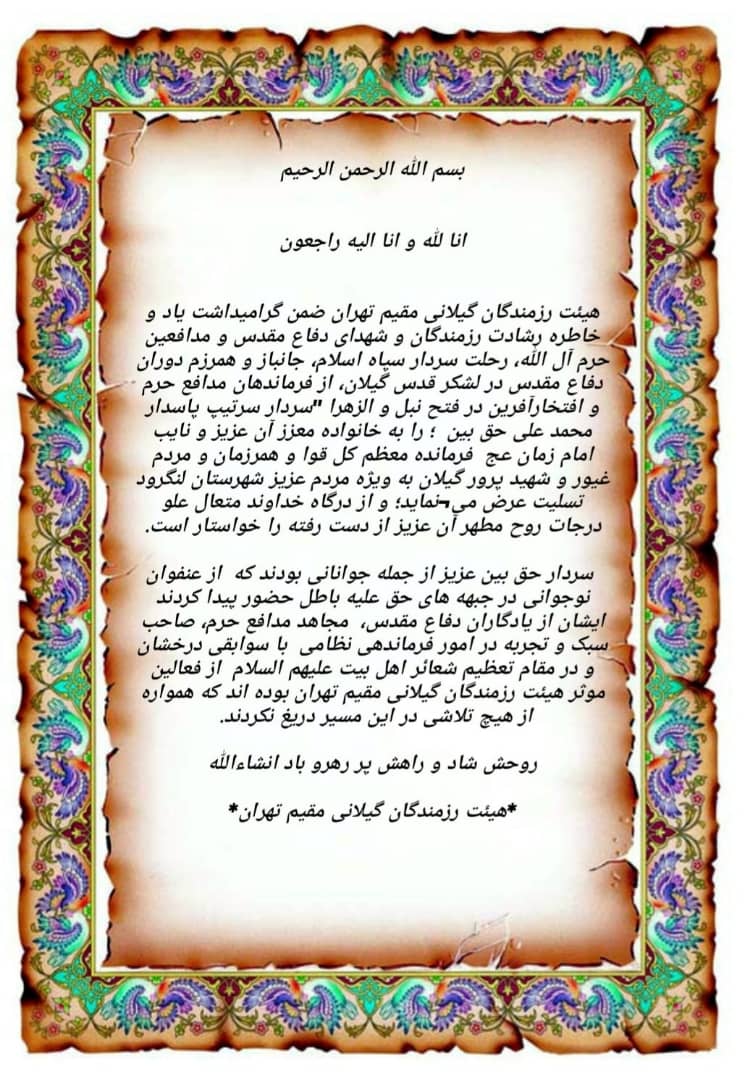 بسم الله الرحمن الرحیم
انا لله و انا الیه راجعون
هیئت رزمندگان گیلانی مقیم تهران ضمن گرامیداشت یاد و
خاطره رشادت رزمندگان و شهدای دفاع مقدس و مدافعین
حرم آل الله، رحلت سردار سپاه اسلام، جانباز و همرزم دوران
دفاع مقدس در لشکر قدس گیلان، از فرماندهان مدافع حرم
و افتخارآفرین در فتح نبل و الزهرا "سردار سرتیپ پاسدار
محمد علی حق بین ؛ را به خانواده معزز آن عزیز و نایب
امام زمان عج فرمانده معظم کل قوا و همرزمان و مردم
غیور و شهید پرور گیلان به ویژه مردم عزیز شهرستان لنگرود
تسلیت عرض می¬نماید؛ و از درگاه خداوند متعال علو
درجات روح مطهر آن عزیز از دست رفته را خواستار است.
سردار حق بین عزیز از جمله جوانانی بودند که از عنفوان
نوجوانی در جبهه های حق علیه باطل حضور پیدا کردند
ایشان از یادگاران دفاع مقدس، مجاهد مدافع حرم، صاحب
سبک و تجربه در امور فرماندهی نظامی با سوابقی درخشان
و در مقام تعظیم شعائر اهل بیت علیهم السلام از فعالین
موثر هیئت رزمندگان گیلانی مقیم تهران بوده اند که همواره
از هیچ تلاشی در این مسیر دریغ نکردند.
روحش شاد و راهش پر رهرو باد انشاءالله
*هیئت رزمندگان گیلانی مقیم تهران*